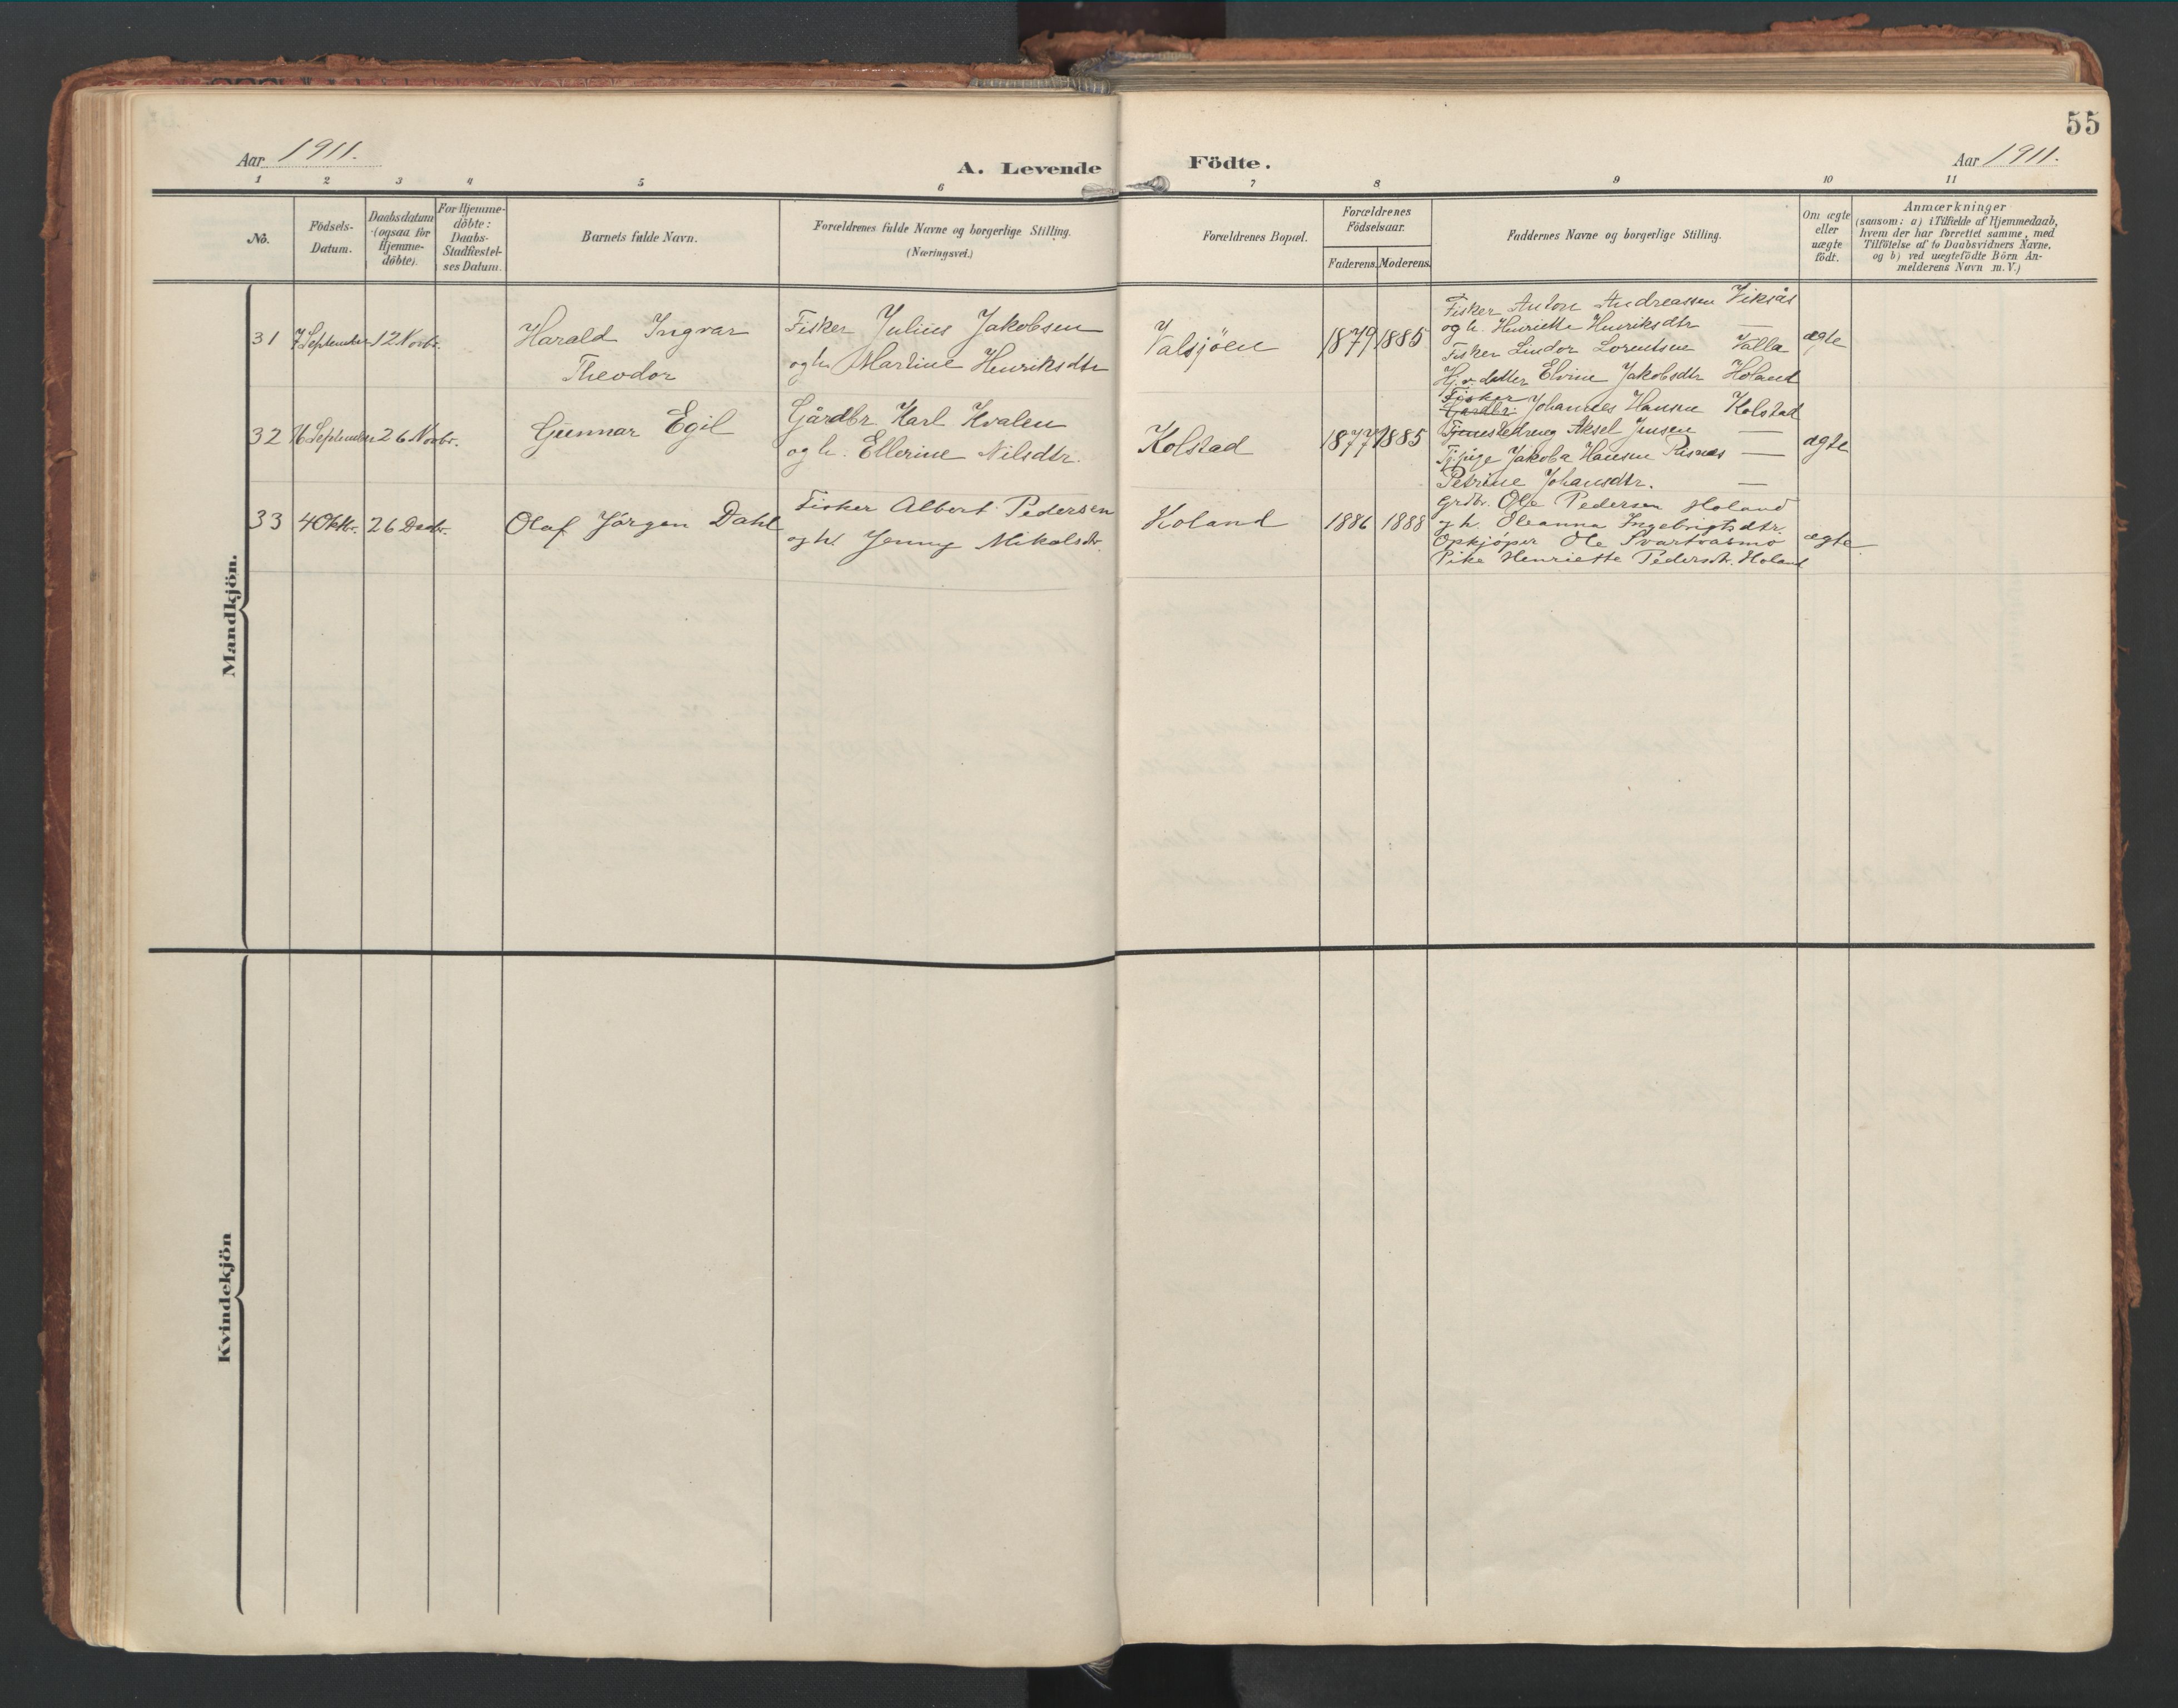 55
Aar 1911.
A. Levende Födte.
Aar 1911.
1 2 3 4 5 6 7 8 9 10 11
No.
Födsels-
Datum.
Daabsdatum
(ogsaa for
Hjemme-
döbte).
For Hjemme-
döbte:
Daabs-
Stadfæstel-
ses Datum.
Barnets fulde Navn.
Forældrenes fulde Navne og borgerlige Stilling.
(Næringsvei.)
Forældrenes Bopæl.
Forældrenes
Födselsaar.
Faderens. Moderens.
Faddernes Navne og borgerlige Stilling.
Om ægte
eller
uægte
födt.
Anmærkninger
(saasom: a) i Tilfælde af Hjemmedaab,
hvem der har forrettet samme, med
Tilföielse af to Daabsvidners Navne.
og b) ved uægtefödte Börn An-
melderens Navn m. V.)
Mandkjön.
31 7 September 12 Novbr.
Harald Ingvar
Theodor
Fisker Julius Jakobsen
og h. Martine Henriksdtr
Valsjöen
1879 1885
Fisker Anton Andreassen Viksås
og h. Henriette Henriksdtr —
Fisker Lindor Lorentsen Valla
Hj.v. datter Elvine Jakobsdtr Holand
ægte
32 16 September 26 Novbr.
Gunnar Egil
Gårdbr. Karl Kvalen
og h. Ellerine Nilsdtr.
Kolstad
1877 1885
Fisker
Gardbr. Johannes Hansen Kolstad
Tjenestedreng Aksel Jensen —
Tj.pige Jakoba Hansen —
Petrine Johansdtr. —
ægte
33 4 Oktbr. 26 Decbr.
Olaf Jörgen Dahl
Fisker Albert Pedersen
og h. Jenny Mikalsdtr.
Holand
1886 1888
Grdbr. Ole Pedersen Holand
og h. Oleanna Ingebrigtsdtr.
Opkjöper Ole Svartvasmo
Pike Henriette Pedersdtr. Holand
ægte
Kvindekjön